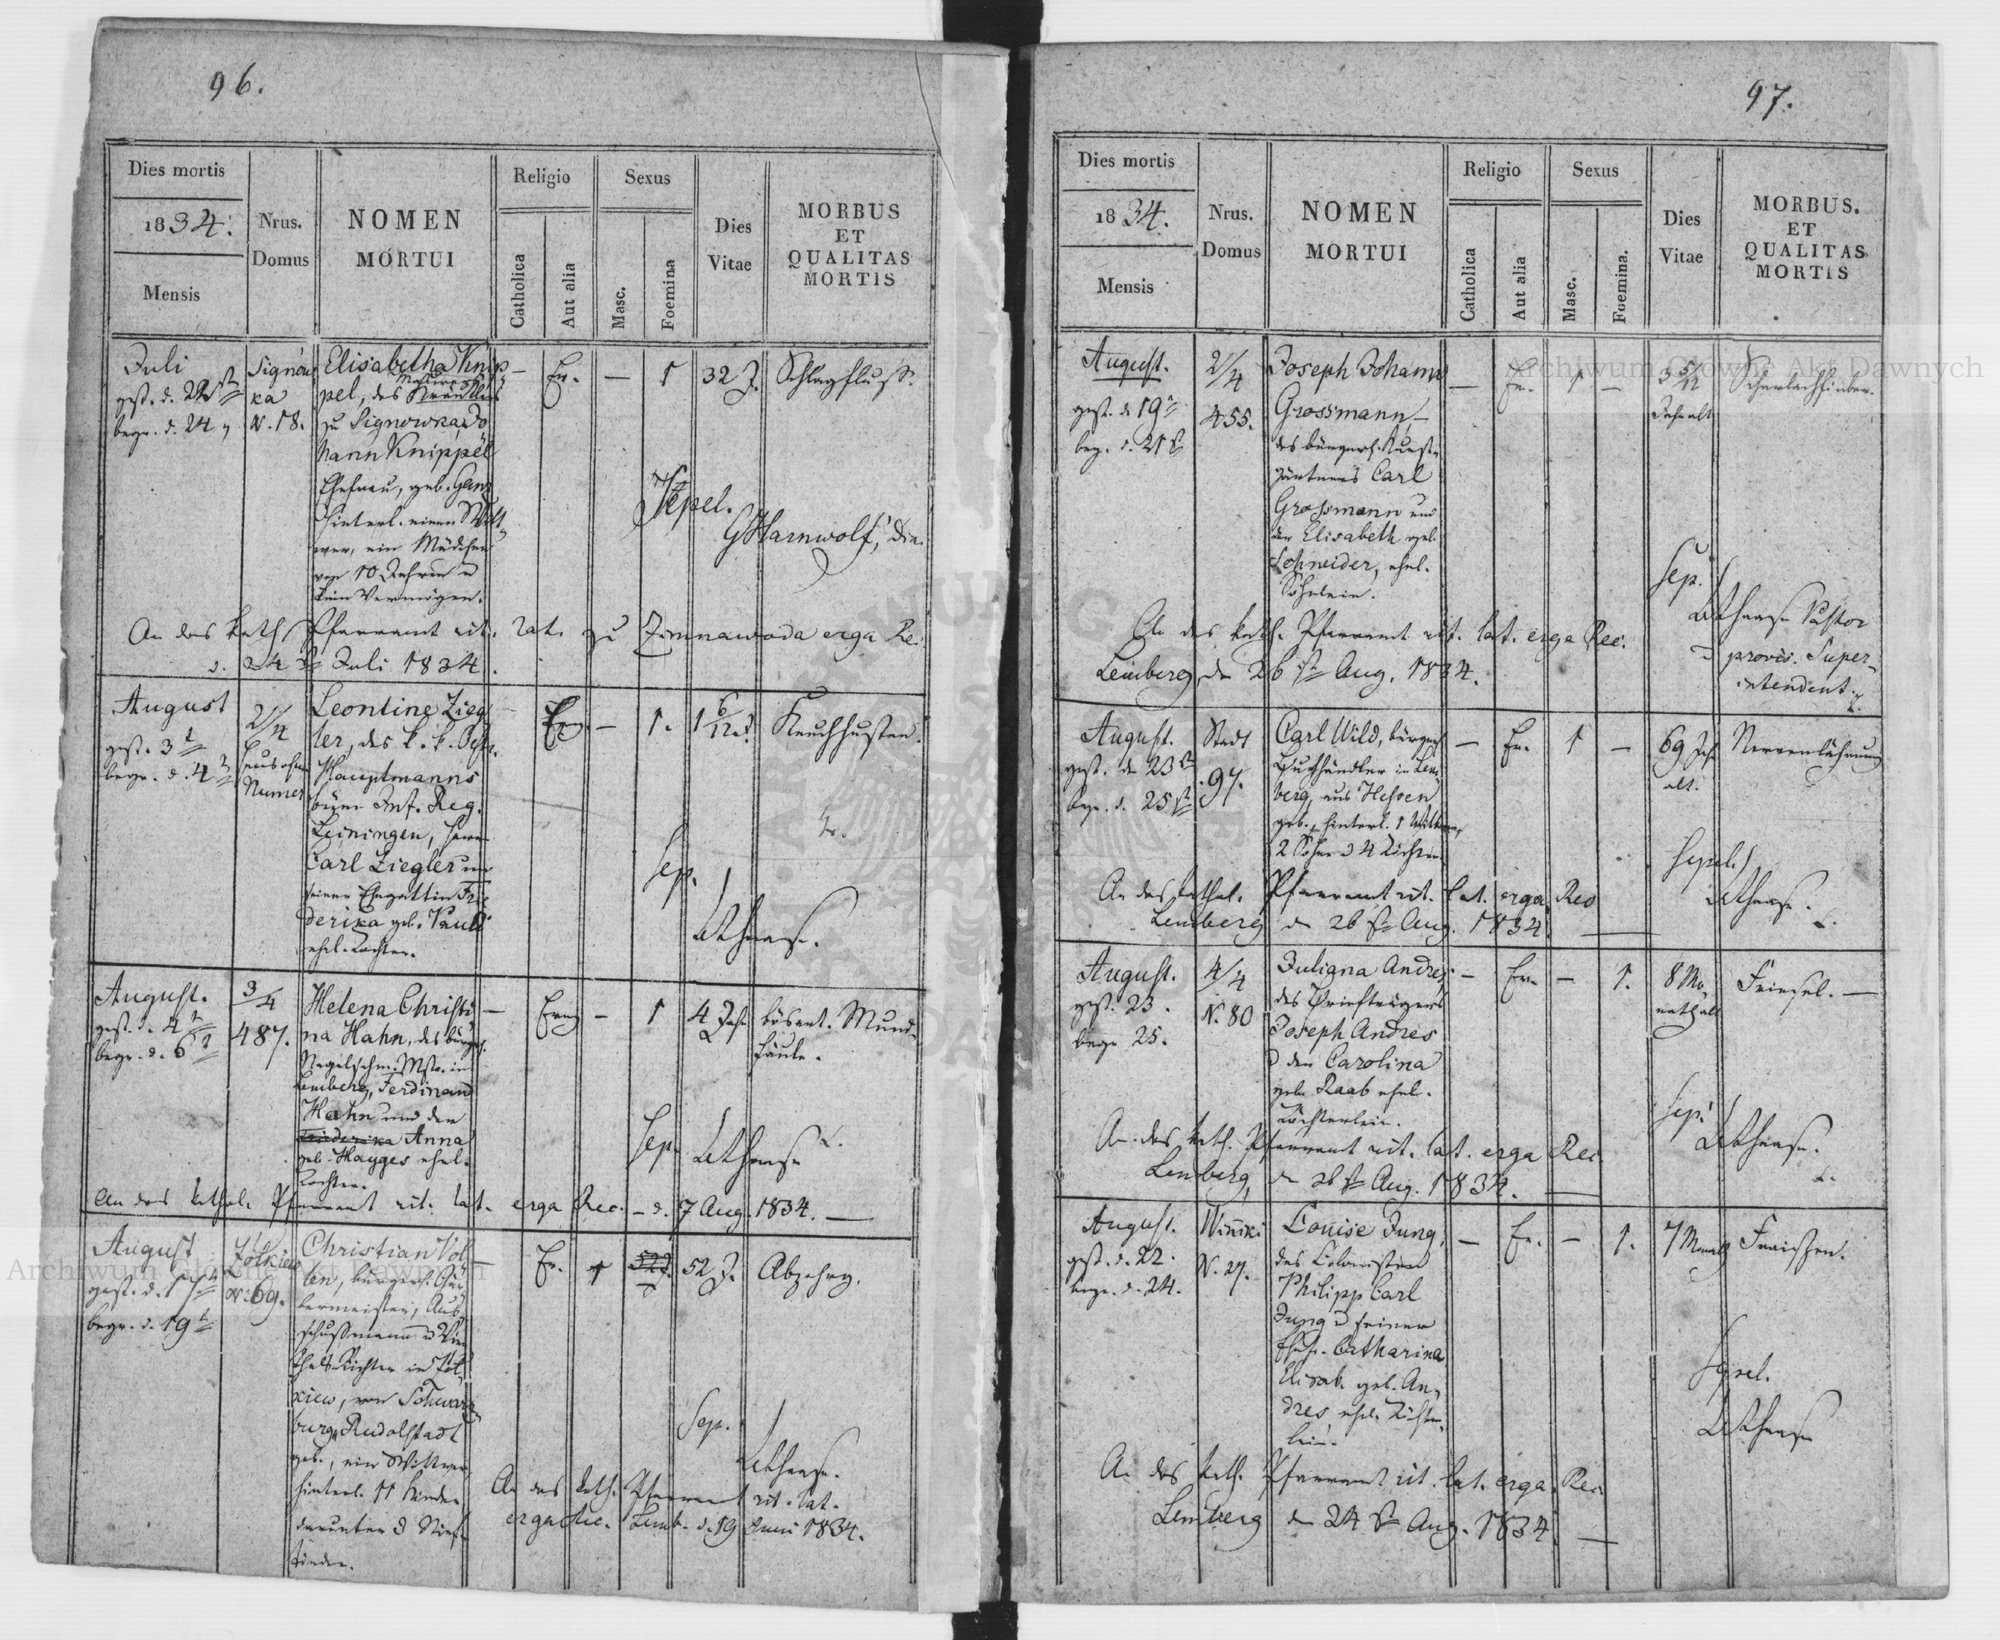 96.
Dies mortis
1834.
Mensis
Nrus.
Domus
NOMEN
MORTUI
Religio
Catholica
Aut alia
Sexus
Masc.
Foemina
Dies
Vitae
MORBUS
ET
QUALITAS
MORTIS
Juli
gest. d. 22
begr. d. 24
Signów
ka
N. 18.
Elisabetha Knip
pel, des
zu Signowka, Jo
hann Knippel
Ehefrau, geb. Ganz
Hinterl. einen Witt
wer, ein Mädchen
von 10 Jahren u
kein Vermögen.
—
Ev.
—
1
32 J.
Schlagfluß.
Sepel.
G Harnwolf,
An das kath. Pfarramt rit. lat. zu Zimnawoda erga Re.
d. 24 Juli 1834.
August
gest. 3
begr. d. 4
2/4
Haus ohne
Numer
Leontine Zieg
ler, des k. k. Oestr.
Hauptmanns
beym Inf. Reg.
Leiningen, Herrn
Carl Ziegler u
seiner Ehegattin Frie
derika geb. Pauli
ehel. Tochter.
Ev.
—
1.
1 6/12 J.
Keuchhusten.
Sep.
August.
gest. d. 4
begr. d. 6
3/4
487.
Helena Christi
na Hahn, des bürgerl.
Nagelschm. Mstr. in
Lemberg, Ferdinand
Hahn und der
Friederika Anna
geb. Hayges ehel.
Tochter.
—
Evng
—
1
4 Jahr
bösart. Mund
fäule.
Sep.
An das kathol. Pfarramt rit. lat. erga Rec. — d. 7 Aug. 1834. —
August
gest. d. 17
begr. d. 19
Zolkiew
N. 69.
Christian Völ
len, bürgerl.
lermeister, Aus
schußmann u Vie
thels Richter in Zol
kiew, von Schwarz
burg Rudolstadt
geb., ein Wittwer
hinterl. 11 Kinder
darunter 3 Stief
kinder.
—
Ev.
1
52 J.
52 J.
Abzehrg.
Sep.
An das kath. Pfarramt rit. lat.
erga Rec. Lemb. d. 19 Juni 1834.
97.
Dies mortis
1834.
Mensis
Nrus.
Domus
NOMEN
MORTUI
Religio
Catholica
Aut alia
Sexus
Masc.
Foemina.
Dies
Vitae
MORBUS.
ET
QUALITAS
MORTIS
August.
gest. d. 19
beg. d. 21
2/4
455.
Joseph Johann
Grossmann,
des bürgerl. Kunst
gärtners Carl
Grossmann und
der Elisabeth geb.
Schneider, ehel.
Söhnlein.
—
Ev.
1
—
3 5/12
Jahr alt
Scharlachfieber.
Sep.
Pastor
u provis. Super
intendent
An das kath. Pfarramt rit. lat. erga Rec.
Lemberg, den 26 Aug. 1834.
August.
gest. den 23
begr. d. 25
Stadt
97.
Carl Wild, bürgerl
Buchhändler in Lem
berg, aus Hessen
geb., hinterl. 1 Wittwe,
2 Söhne u 4 Töchter
—
Ev.
1
—
69 Jahr
alt.
Nervenlähmung
Sepel.
An das kathol. Pfarramt rit. lat. erga Rec
Lemberg den 26 Aug. 1834.
August.
gest. 23.
begr. 25.
4/4
N. 80
Juliana Andres
des Briefträgers
Joseph Andres
u der Carolina
geb. Raab ehel.
Töchterlein.
—
Ev.
—
1.
8 Mo
nath alt
Friesel. —
Sep.
An das kath. Pfarramt rit. lat. erga Rec.
Lemberg, den 26 Aug. 1834.
August.
gest. d. 22.
begr. d. 24.
Winniki
N. 27.
Louise Jung,
des Colonisten
Philipp Carl
Jung u seiner
Ehefr. Catharina
Elisab. geb. An
dres, ehel. Töchter
lein.
—
Ev.
—
1.
7 Monath
Fraissen.
Sepel.
An das kath. Pfarramt rit. lat. erga Rec
Lemberg den 24 Aug. 1834. —
Archiwum Główne Akt Dawnych
Archiwum Główne Akt Dawnych